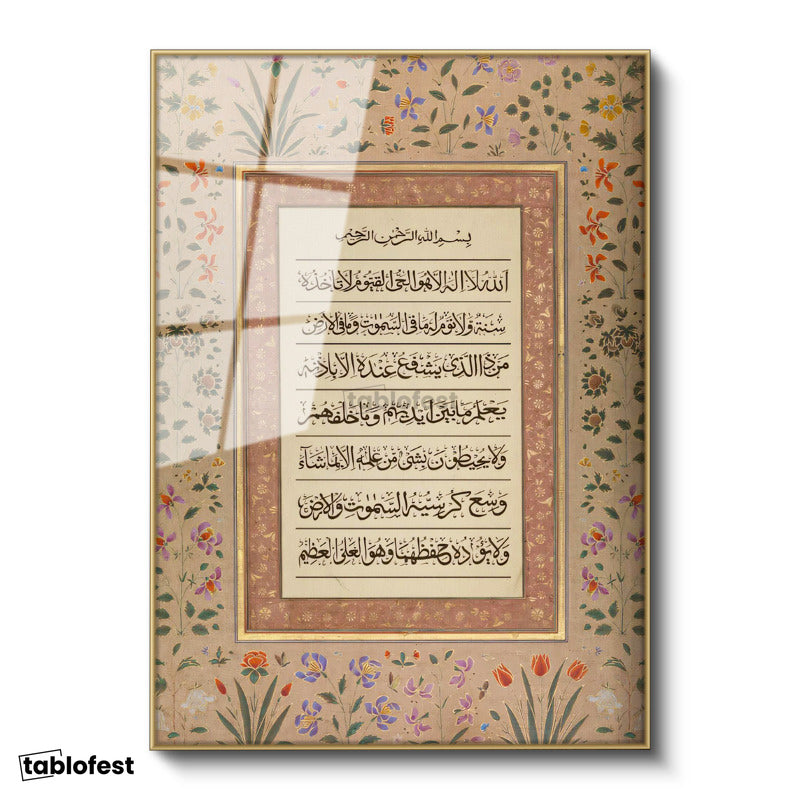 بِسْمِ اللهِ الرَّحْمٰنِ الرَّحِيْمِ
اَللهُ لَا اِلٰهَ اِلَّا هُوَ الْحَيُّ الْقَيُّوْمُ لَا تَأْخُذُهٗ
سِنَةٌ وَّلَا نَوْمٌ لَهٗ مَا فِي السَّمٰوٰتِ وَمَا فِي الْاَرْضِ
مَنْ ذَا الَّذِيْ يَشْفَعُ عِنْدَهٗ اِلَّا بِاِذْنِهٖ
يَعْلَمُ مَا بَيْنَ اَيْدِيْهِمْ وَمَا خَلْفَهُمْ
وَلَا يُحِيْطُوْنَ بِشَيْءٍ مِّنْ عِلْمِهٖ اِلَّا بِمَا شَآءَ
وَسِعَ كُرْسِيُّهُ السَّمٰوٰتِ وَالْاَرْضَ
وَلَا يَؤُدُهٗ حِفْظُهُمَا وَهُوَ الْعَلِيُّ الْعَظِيْمُ
tablofest
tablofest